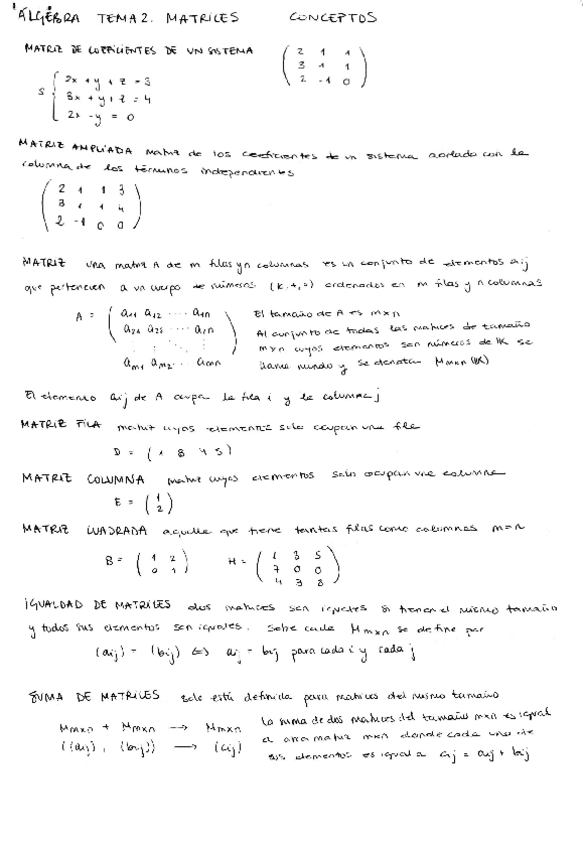 ÁLGEBRA TEMA 2. MATRICES CONCEPTOS
MATRIZ DE COEFICIENTES DE UN SISTEMA
( 2 1 1
3 1 1
2 -1 0 )
S { 2x + y + z = 3
3x + y + z = 4
2x - y = 0
MATRIZ AMPLIADA matriz de los coeficientes de un sistema acotado con la
columna de los términos independientes
( 2 1 1 3
3 1 1 4
2 -1 0 0 )
MATRIZ una matriz A de m filas y n columnas es un conjunto de elementos aij
que pertenecen a un cuerpo de números (K,+,·) ordenados en m filas y n columnas
A = ( a11 a12 ... a1n
a21 a22 ... a2n
am1 am2 ... amn )
El tamaño de A es m×n
Al conjunto de todas las matrices de tamaño
m×n cuyos elementos son números de K se
llama mundo y se denota Mm×n (K)
El elemento aij de A ocupa la fila i y la columna j
MATRIZ FILA matriz cuyos elementos solo ocupan una fila
D = ( 1 8 4 5 )
MATRIZ COLUMNA matriz cuyos elementos solo ocupan una columna
E = ( 1
2 )
MATRIZ CUADRADA aquella que tiene tantas filas como columnas m=n
B = ( 1 2
0 1 )
H = ( 1 3 5
7 0 0
4 3 8 )
IGUALDAD DE MATRICES dos matrices son iguales si tienen el mismo tamaño
y todos sus elementos son iguales. Sobre cada Mm×n se define por
(aij) = (bij) <=> aij = bij para cada i y cada j
SUMA DE MATRICES solo está definida para matrices del mismo tamaño
Mm×n + Mm×n → Mm×n
((aij), (bij)) → (cij)
La suma de dos matrices del tamaño m×n es igual
a otra matriz m×n donde cada uno de
sus elementos es igual a cij = aij + bij